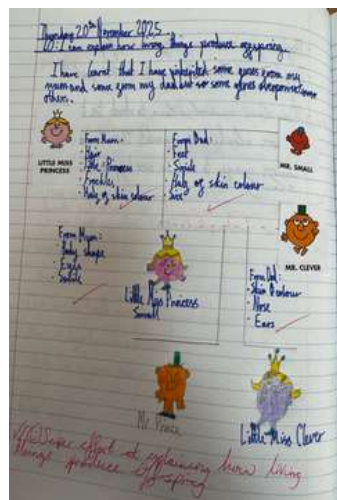 Thursday 20th November 2025
I can explain how living things produce offspring.
I have learnt that I have inherited some genes from my
mum and some from my dad but some genes
others.
LITTLE MISS
PRINCESS
From Mum:
· Hair
· Freckles
· Half of skin colour
From Dad:
· Feet
· Smile
· Half of skin colour
· Size
MR. SMALL
From Mum:
· Body shape
· Eyes
· Smile
Little Miss Princess
Small
MR. CLEVER
From Dad:
· Skin colour
· Nose
· Ears
Mr Prince
Little Miss Clever
Super effort at explaining how living
things produce offspring